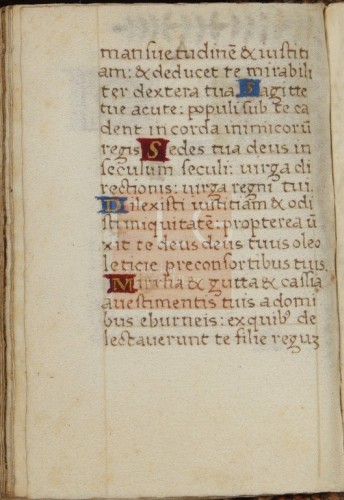 mansuetudinē & iustiti
am: & deducet te mirabili
ter dextera tua Sagitte
tue acute: populi sub te ca
dent in corda inimicorū
regis Sedes tua deus in
seculum seculi: uirga di
rectionis: uirga regni tui.
Dilexisti iustitiam & odi
sti iniquitatē: propterea ū
xit te deus deus tuus oleo
leticie preconsortibus tuis.
Mirrha & gutta & cassia
auestimentis tuis adomi
bus eburneis: exquibꝰ de
lectauerunt te filie reguʒ